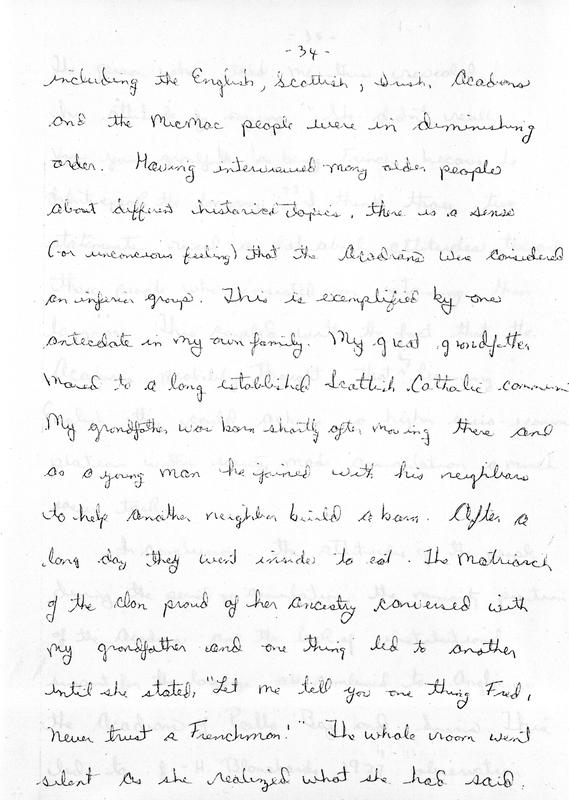 -34-
including the English, Scottish, Irish, Acadians
and the MicMac people were in diminishing
order. Having interviewed many older people
about different historical topics, there is a sense
(-or unconcious feeling) that the Acadians were considered
an inferior group. This is exemplified by one
antecdate in my own family. My great grandfather
moved to a long established Scottish Catholic commun
My grandfather was born shortly after moving there and
as a young man he joined with his neighbors
to help another neighbor build a barn. After a
long day they went inside to eat. The Matriarch
of the clan proud of her ancestry conversed with
my grandfather and one thing led to another
until she stated, "Let me tell you one thing Fred,
never trust a Frenchman!" The whole room went
silent as she realized what she had said.